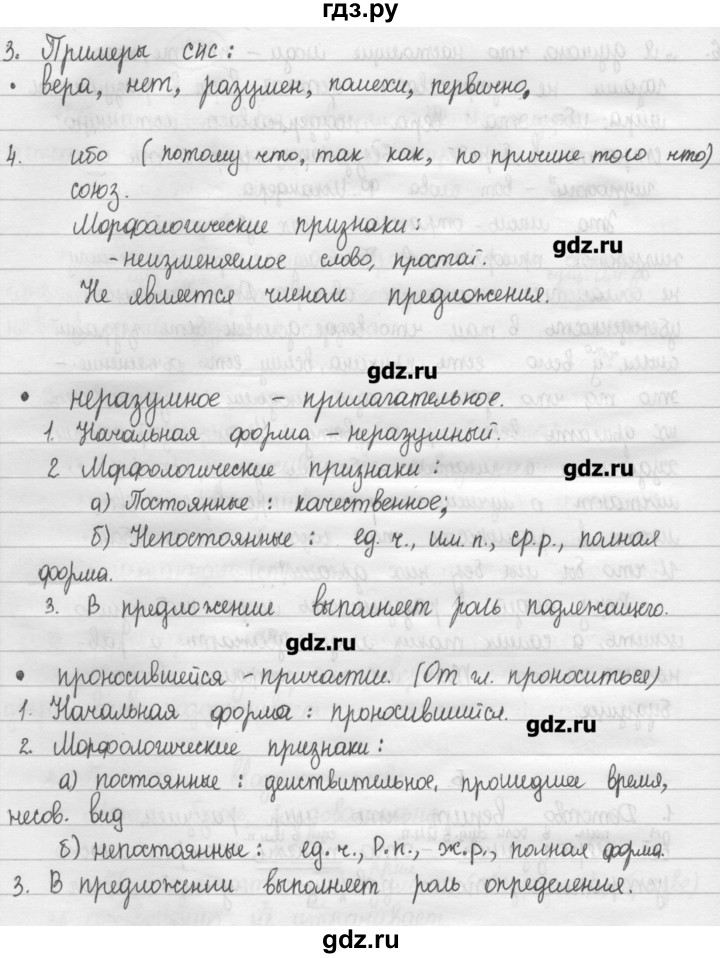 гдз.ру
3. Примеры СКС:
• вера, нет, разумен, помехи, первично.
4. ибо (потому что, так как, по причине того что)
союз.
Морфологические признаки:
- неизменяемое слово, простой.
gdz.ru
Не является членом предложения.
gdz.ru
• неразумное - прилагательное.
1. Начальная форма - неразумный.
2 Морфологические признаки:
gdz.ru
а) Постоянные: качественное;
б) Непостоянные: ед.ч., им.п., ср.р., полная
форма.
3. В предложение выполняет роль подлежащего.
gdz.ru
• проносившейся - причастии. (От гл. проноситься)
1. Начальная форма: проносившийся.
gdz.ru
2. Морфологические признаки:
а) постоянные: действительное, прошедшее время,
несов. вид
б) непостоянные: ед.ч., Р.п., ж.р., полная форма.
3. В предложении выполняет роль определения
gdz.ru